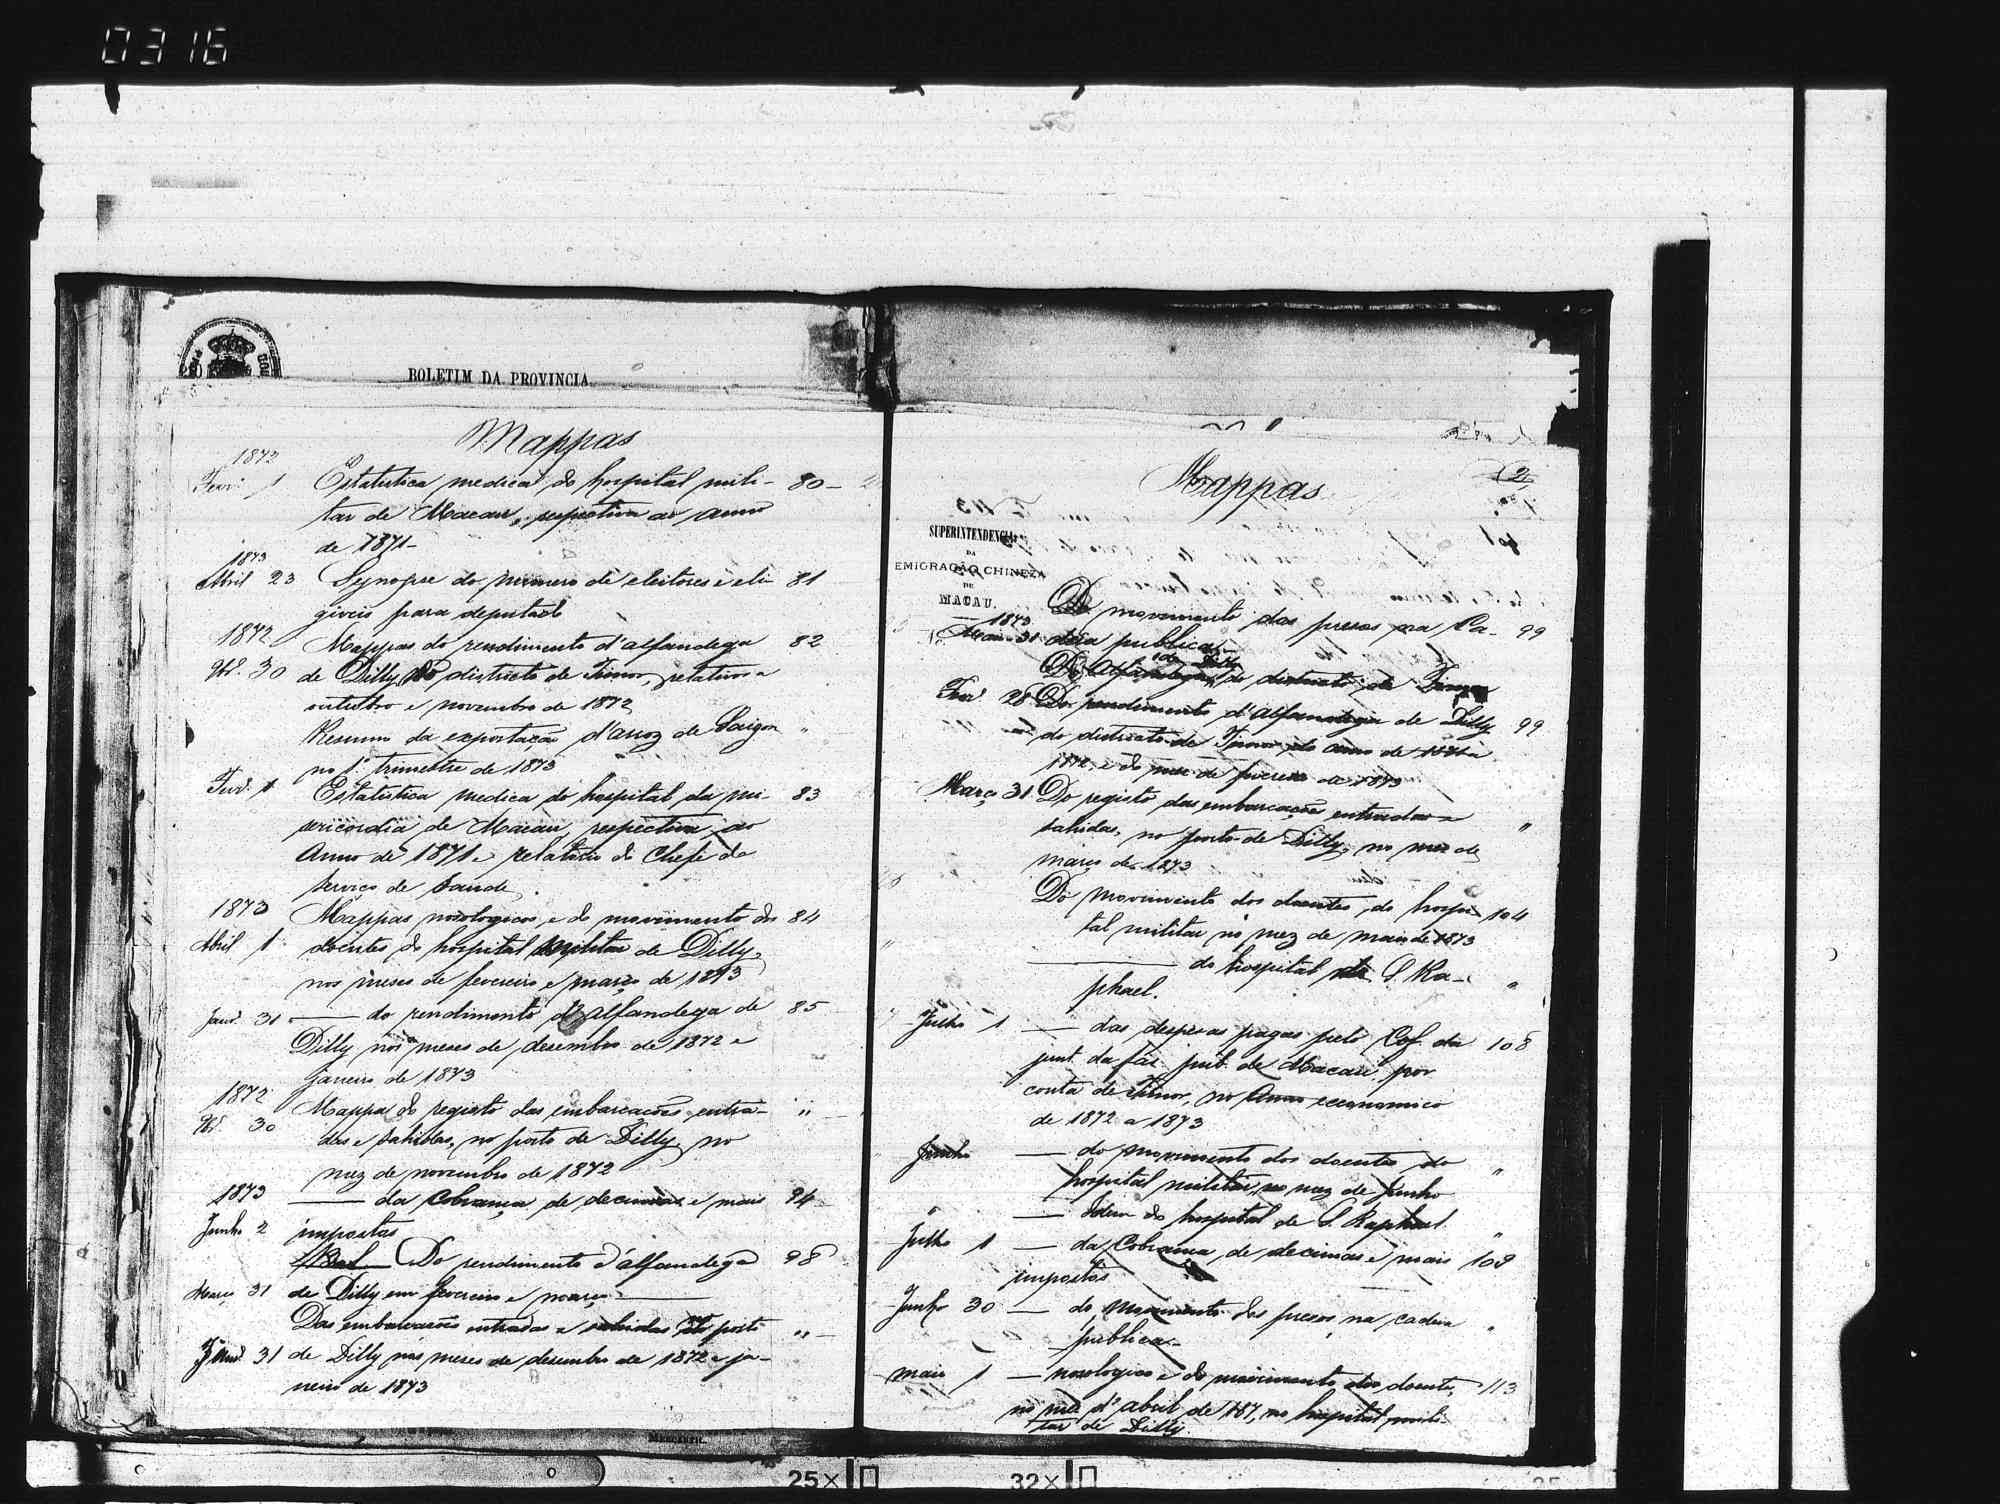 0316
BOLETIM DA PROVINCIA
Mappas
1872
Fevr. 1 Estatistica medica do hospital mili- 80
tar de Macau, respectiva ao anno
de 1871-
1873
Abril 23 Synopse do numero de eleitores e eli- 81
giveis para deputado
1872 Mappas do rendimento d'alfandega 82
9br. 30 de Dilly, do districto de Timor, relativos a
outubro e novembro de 1872
Resumo da exportação d'arroz de Saigon "
no 1º trimestre de 1873
Fevr. 1 Estatistica medica do hospital da mi- 83
sericordia de Macau, respectiva ao
Anno de 1871 e relatorio do Chefe do
serviço de saude
1873 Mappas nosologicos, e do movimento dos 84
Abril 1 doentes do hospital militar de Dilly,
nos meses de fevereiro e março de 1873
Janr. 31 — do rendimento d'alfandega de 85
Dilly nos meses de desembro de 1872 e
janeiro de 1873
1872 Mappa do registo das embarcações, entra- "
9br. 30 das e sahidas, no porto de Dilly, no
mez de novembro de 1872
1873 — da cobrança de decimas e mais 94
Junho 2 impostos
Do rendimento d'alfandega 98
Março 31 de Dilly em fevereiro e março
Das embarcações entradas e sahidas do porto "
Janr. 31 de Dilly nos meses de desembro de 1872 e ja-
neiro de 1873
MACARTH.
Mappas
SUPERINTENDENCIA
DA
EMIGRAÇÃO CHINEZA
DE
MACAU.
Do movimento dos presos na Ca- 99
1873
Maio 31 deia publica
de Dilly
Do Alfandega, do districto de Timor
Fevr. 28 Do rendimento d'alfandega de Dilly 99
do districto de Timor do anno de 1871 a
1872, e do mez de fevereiro de 1873
Março 31 Do registo das embarcações entradas e
sahidas, no porto de Dilly, no mez de "
março de 1873
Do movimento dos doentes, do hospi- 104
tal militar no mez de maio de 1873
— do hospital de S. Ra- "
phael.
Julho 1 — das despesas pagas pelo Cof. da 108
junt. da faz. pub. de Macau por
conta de Timor, no Anno economico
de 1872 a 1873
Junho — do movimento dos doentes do
hospital militar, no mez de Junho "
" — Idem do hospital de S. Raphael "
Julho 1 — da Cobrança de decimas e mais 109
impostos
Junho 30 — do movimento dos presos, na cadeia "
publica
maio 1 — nosologico e do movimento dos doentes, 113
no mez d'abril de 187, no hospital mili-
tar de Dilly
25× 32×